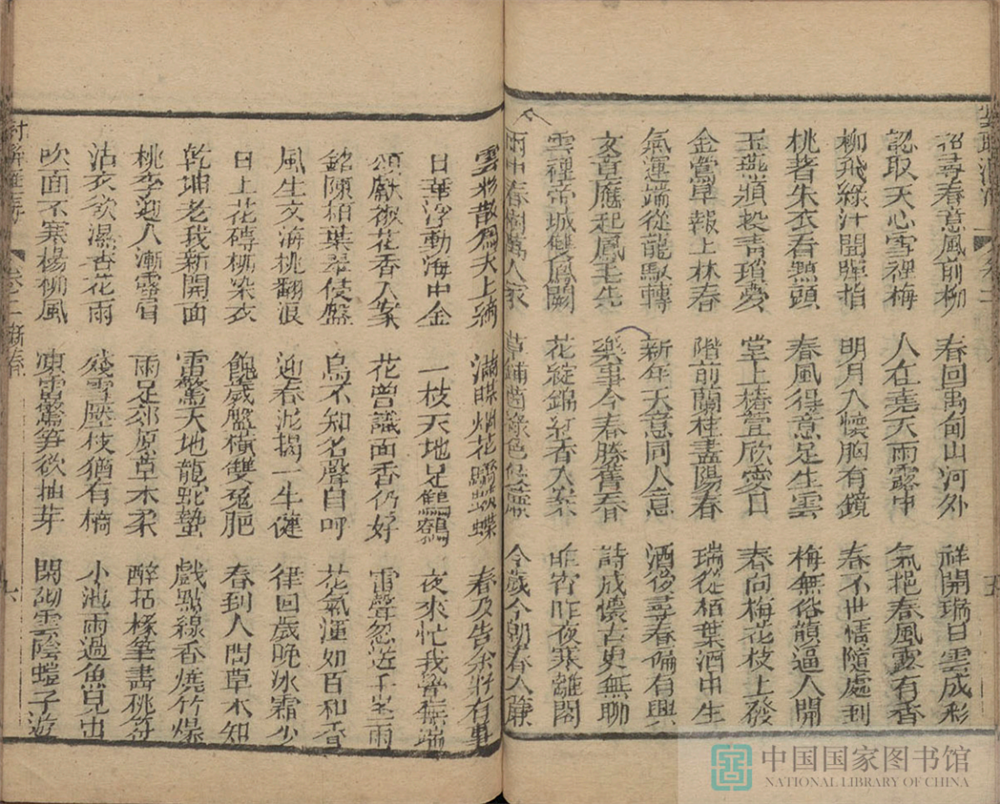 招尋春意風前柳　春回禹甸山河外　祥開瑞日雲成彩
認取天心雪裡梅　人在堯天雨露中　氣挹春風露有香
柳飛綠汁開暉指　明月入懷胸有鏡　春不世情隨處到
桃者朱衣看點頭　春風得意足生雲　梅無俗韻逼人開
玉燕頻投青瑣夢　堂上椿萱欣愛日　春向梅花枝上發
金鶯早報上林春　階前蘭桂盡陽春　瑞從栢葉酒中生
氣運端從龍馭轉　新年天意同人意　酒後尋春偏有興
文章應起鳳毛先　樂事今春勝舊春　詩成懷古更無聊
雲裡帝城雙鳳闕　花綻錦紅香入案　昨夜寒離閣
雨中春樹萬人家　草鋪茵綠色　今歲今朝春入簾
雲移散為天上綺　滿　烟花　蝶　春及告余將有事
日華浮動海中金　一枝天地足鷦鷯　夜來忙我覺無端
頌獻椒花香入篆　花曾識面香仍好　雷聲忽送千峯雨
銘陳栢葉翠侵盤　鳥不知名聲自呼　花氣渾如百和香
風生文海桃翻浪　迎春泥揭一牛健　律回歲晚冰霜少
日上花磚桃染衣　餽歲盤橫雙兔肥　春到人間草木知
乾坤老我新開面　雷驚天地龍蛇蟄　戲點線香燒竹爆
桃李迎人漸露官　雨足郊原草木柔　醉拈椽筆畫桃符
沾衣欲濕杏花雨　殘雪壓枝猶有橘　小池雨過魚兒出
吹面不寒楊柳風　凍雷驚筍欲抽芽　閒砌雲陰螘子遊
卷二　新春　六
中国国家图书馆
NATIONAL LIBRARY OF CHINA